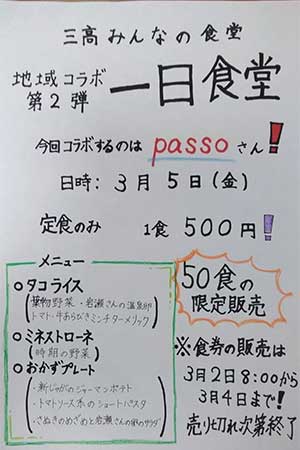 三高みんなの食堂
地域コラボ
第2弾
一日食堂
今回コラボするのは passo さん!
日時: 3月5日(金)
定食のみ 1食 500円!
メニュー
○タコライス
(葉物野菜・岩瀬さんの温泉卵
トマト・牛あらびきミンチ ターメリック)
○ミネストローネ
(時期の野菜)
○おかずプレート
・新じゃがのジャーマンポテト
・トマトソース系のショートパスタ
・さぬきのめざめと岩瀬さんの卵のサラダ
50食の
限定販売
※食券の販売は
3月2日8:00から
3月4日まで!
売り切れ次第終了